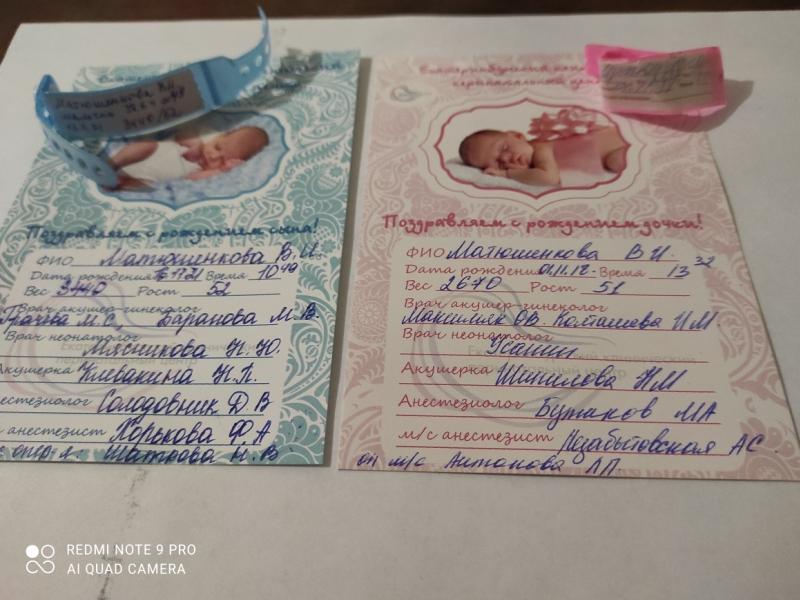 Матюшенкова В.И.
мальчик
3440/52
Поздравляем с рождением сына!
ФИО Матюшенкова В.И.
Дата рождения Время 10 49
Вес 3440 Рост 52
Врач акушер-гинеколог
М.С., Баранова М.В.
Врач неонатолог
Мясникова Н.Ю.
Акушерка Клевакина Н.П.
Солодовник Д.В
анестезист Норькова Ф А
Н.В
Екатеринбургский
перинатальный
Поздравляем с рождением дочки!
ФИО Матюшенкова В И.
Дата рождения 01.11.12- Время 13 32
Вес 2670 Рост 51
Врач акушер-гинеколог
ОВ. Колташева И М.
Врач неонатолог
Усанин
Акушерка Шипилева НМ
Анестезиолог Бутаков МА
м/с анестезист Незабытовская АС
оп м/с Антонова ЛП.
REDMI NOTE 9 PRO
AI QUAD CAMERA